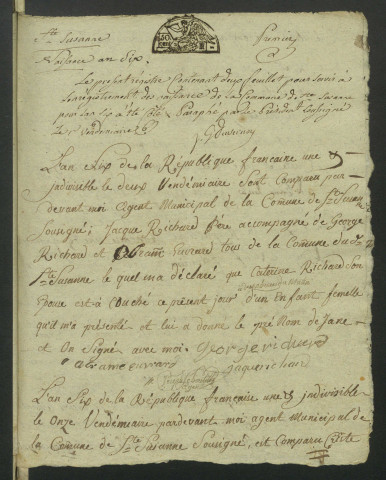 Ste Susanne
premier
Naissance an Six.
Le present régistre Contenant deux feuillet pour Servir à
l'enregistrement des naissance de la Commune de Ste Susanne
pour l'an 6 a été Coté & Paraphé par le President Soussigné
le 1er Vendemiaire
L'an Six de la République francaise une &
indivisible le deux Vendémiaire Sont Comparu par
devant moi Agent Municipal de la Comune de Ste Susanne
Sousigné; Jacque Richard frère accompagné de George
Richard et Abram Euvrard tous de la Comune du dt
Ste Susanne le quel m'a déclaré que Caterine Richard Son
Epouse est à Couché ce présent jour d'un Enfant femelle
qu'il m'a présenté et lui a doné le pré Nom de Jane
et On Signé avec moi. George richard
abram euvrard
Jaque richard
L'an Six de la République française une & indivisible
le Onze Vendémiaire pardevant moi agent Municipal de
la Comune de Ste Susanne Sousigné, est Comparu